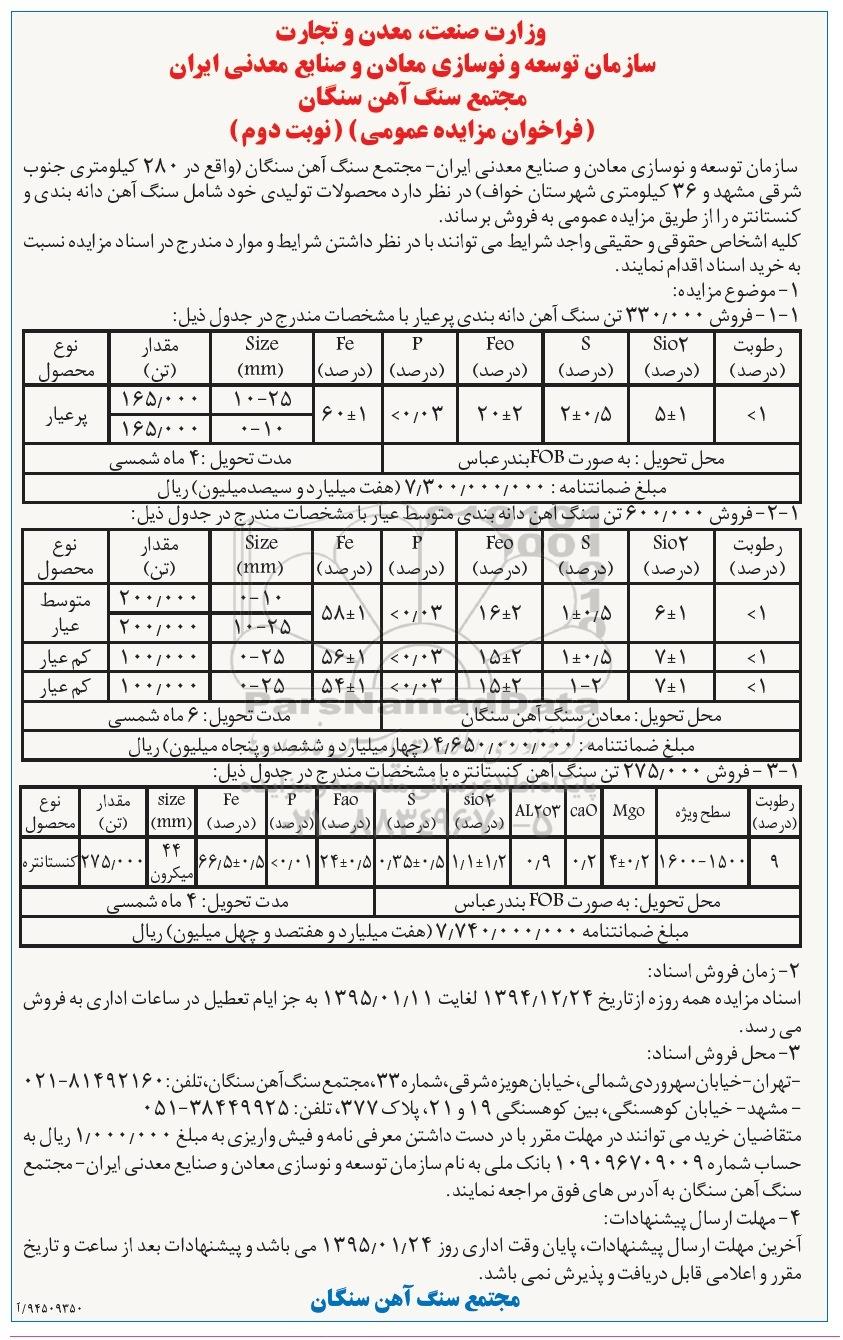 وزارت صنعت، معدن و تجارت
سازمان توسعه و نوسازی معادن و صنایع معدنی ایران
مجتمع سنگ آهن سنگان
(فراخوان مزایده عمومی) (نوبت دوم)
سازمان توسعه و نوسازی معادن و صنایع معدنی ایران- مجتمع سنگ آهن سنگان (واقع در ۲۸۰ کیلومتری جنوب
شرقی مشهد و ۳۶ کیلومتری شهرستان خواف) در نظر دارد محصولات تولیدی خود شامل سنگ آهن دانه بندی و
کنستانتره را از طریق مزایده عمومی به فروش برساند.
کلیه اشخاص حقوقی و حقیقی واجد شرایط می توانند با در نظر داشتن شرایط و موارد مندرج در اسناد مزایده نسبت
به خرید اسناد اقدام نمایند.
۱- موضوع مزایده:
۱-۱- فروش ۳۳۰/۰۰۰ تن سنگ آهن دانه بندی پرعیار با مشخصات مندرج در جدول ذیل:
رطوبت (درصد) Sio۲ (درصد) S (درصد) Feo (درصد) P (درصد) Fe (درصد) Size (mm) مقدار (تن) نوع محصول
<۱ ۵±۱ ۲±۰/۵ ۲۰±۲ <۰/۰۳ ۶۰±۱ ۱۰-۲۵ ۱۶۵/۰۰۰ پرعیار
۰-۱۰ ۱۶۵/۰۰۰
محل تحویل : به صورت FOBبندرعباس مدت تحویل :۴ ماه شمسی
مبلغ ضمانتنامه : ۷/۳۰۰/۰۰۰/۰۰۰ (هفت میلیارد و سیصدمیلیون) ریال
۱-۲- فروش ۶۰۰/۰۰۰ تن سنگ آهن دانه بندی متوسط عیار با مشخصات مندرج در جدول ذیل:
رطوبت (درصد) Sio۲ (درصد) S (درصد) Feo (درصد) P (درصد) Fe (درصد) Size (mm) مقدار (تن) نوع محصول
<۱ ۶±۱ ۱±۰/۵ ۱۶±۲ <۰/۰۳ ۵۸±۱ ۰-۱۰ ۲۰۰/۰۰۰ متوسط عیار
۱۰-۲۵ ۲۰۰/۰۰۰
<۱ ۷±۱ ۱±۰/۵ ۱۵±۲ <۰/۰۳ ۵۶±۱ ۰-۲۵ ۱۰۰/۰۰۰ کم عیار
<۱ ۷±۱ ۱-۲ ۱۵±۲ <۰/۰۳ ۵۴±۱ ۰-۲۵ ۱۰۰/۰۰۰ کم عیار
محل تحویل: معادن سنگ آهن سنگان مدت تحویل: ۶ ماه شمسی
مبلغ ضمانتنامه : ۴/۶۵۰/۰۰۰/۰۰۰ (چهارمیلیارد و ششصد و پنجاه میلیون) ریال
۱-۳- فروش ۲۷۵/۰۰۰ تن سنگ آهن کنستانتره با مشخصات مندرج در جدول ذیل:
رطوبت (درصد) سطح ویژه Mgo caO AL۲o۳ sio۲ (درصد) S (درصد) Fao (درصد) P (درصد) Fe (درصد) size (mm) مقدار (تن) نوع محصول
۹ ۱۶۰۰-۱۵۰۰ ۴±۰/۲ ۰/۲ ۰/۹ ۱/۱±۱/۲ ۰/۳۵±۰/۵ ۲۴±۰/۵ <۰/۰۱ ۶۶/۵±۰/۵ ۴۴ میکرون ۲۷۵/۰۰۰ کنستانتره
محل تحویل: به صورت FOB بندرعباس مدت تحویل: ۴ ماه شمسی
مبلغ ضمانتنامه ۷/۷۴۰/۰۰۰/۰۰۰ (هفت میلیارد و هفتصد و چهل میلیون) ریال
۲- زمان فروش اسناد:
اسناد مزایده همه روزه ازتاریخ ۱۳۹۴/۱۲/۲۴ لغایت ۱۳۹۵/۰۱/۱۱ به جز ایام تعطیل در ساعات اداری به فروش
می رسد.
۳- محل فروش اسناد:
-تهران-خیابان سهروردی شمالی،خیابان هویزه شرقی،شماره ۳۳،مجتمع سنگ آهن سنگان،تلفن:۸۱۴۹۲۱۶۰-۰۲۱
- مشهد- خیابان کوهسنگی، بین کوهسنگی ۱۹ و ۲۱، پلاک ۳۷۷، تلفن: ۳۸۴۴۹۹۲۵-۰۵۱
متقاضیان خرید می توانند در مهلت مقرر با در دست داشتن معرفی نامه و فیش واریزی به مبلغ ۱/۰۰۰/۰۰۰ ریال به
حساب شماره ۱۰۹۰۹۶۷۰۹۰۰۹ بانک ملی به نام سازمان توسعه و نوسازی معادن و صنایع معدنی ایران- مجتمع
سنگ آهن سنگان به آدرس های فوق مراجعه نمایند.
۴- مهلت ارسال پیشنهادات:
آخرین مهلت ارسال پیشنهادات، پایان وقت اداری روز ۱۳۹۵/۰۱/۲۴ می باشد و پیشنهادات بعد از ساعت و تاریخ
مقرر و اعلامی قابل دریافت و پذیرش نمی باشد.
مجتمع سنگ آهن سنگان
۹۴۵۰۹۳۵۰/آ
ParsNamadData
پایگاه اطلاع رسانی مناقصه و مزایده
۰۲۱-۸۸۳۴۹۶۷۰-۵